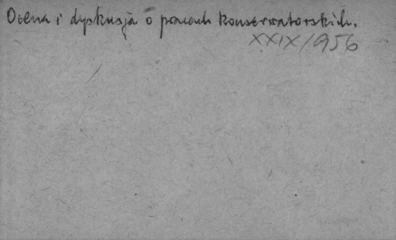 Ocena i dyskusja o pracach konserwatorskich.
XXIX/1956